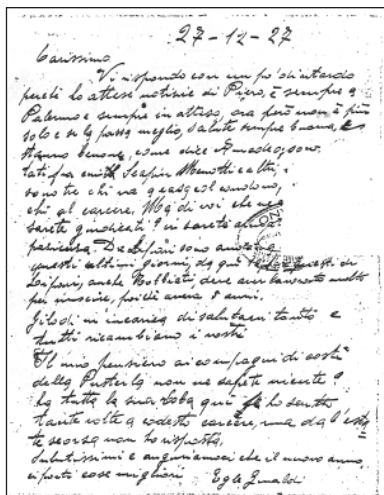 27-12-27
Carissimo
Vi rispondo con un po' di ritardo
perché ho attese notizie di Piero, è sempre a
Palermo e sempre in attesa, ora però non è più
solo e se la passa meglio, salute sempre buona,
stanno benone, come dice Amadeo, sono
stati poi Scapin Menotti e altri,
sono tre chi va a quasi col condono,
chi al carcere. Ma di voi che ne
sarete giudicati? vi sarete ancora
Da Lipari sono
questi ultimi giorni, da qui
Lipari, anche deve aver lavorato molto
per riuscire, poiché aveva 5 anni.
Gilodi m'incarica di salutarvi tanto e
tutti ricambiamo i vostri
Il mio pensiero ai compagni di costì
della Pusterla non ne sapete niente?
ha tutta la sua roba qui ho scritto
tante volte a codesto carcere, ma dall'estate
scorsa non ho risposta.
Salutissimi e auguriamoci che il nuovo anno
ci porti cose migliori Egle Gualdi